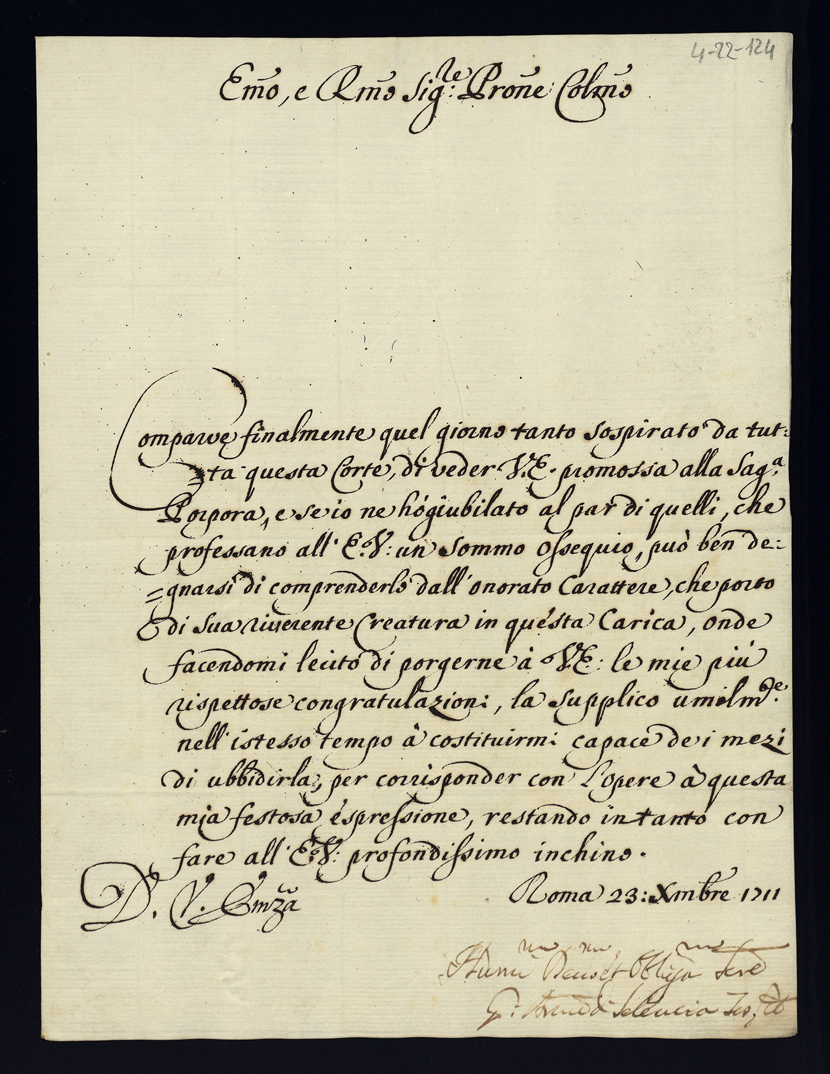 4-22-124
Emo, e Rmo Sig.re Prone Colmo
Comparve finalmente quel giorno tanto sospirato da tut:
=ta questa Corte, di veder V.E. promossa alla Sag.a
Porpora, e se io ne hò giubilato al par di quelli, che
professano all' E.V: un sommo ossequio, può ben de:
=gnarsi di comprenderlo dall'onorato Carattere, che porto
di sua riverente Creatura in questa Carica, onde
facendomi lecito di porgerne à V.E: le mie più
rispettose congratulazioni, la supplico umilm.te
nell'istesso tempo à costituirmi capace de i mezi
di ubbidirla, per corrisponder con l'opere à questa
mia festosa espressione, restando intanto con
fare all' E.V: profondissimo inchino.
Roma 23: Xmbre 1711
D. V. Emza
Humil